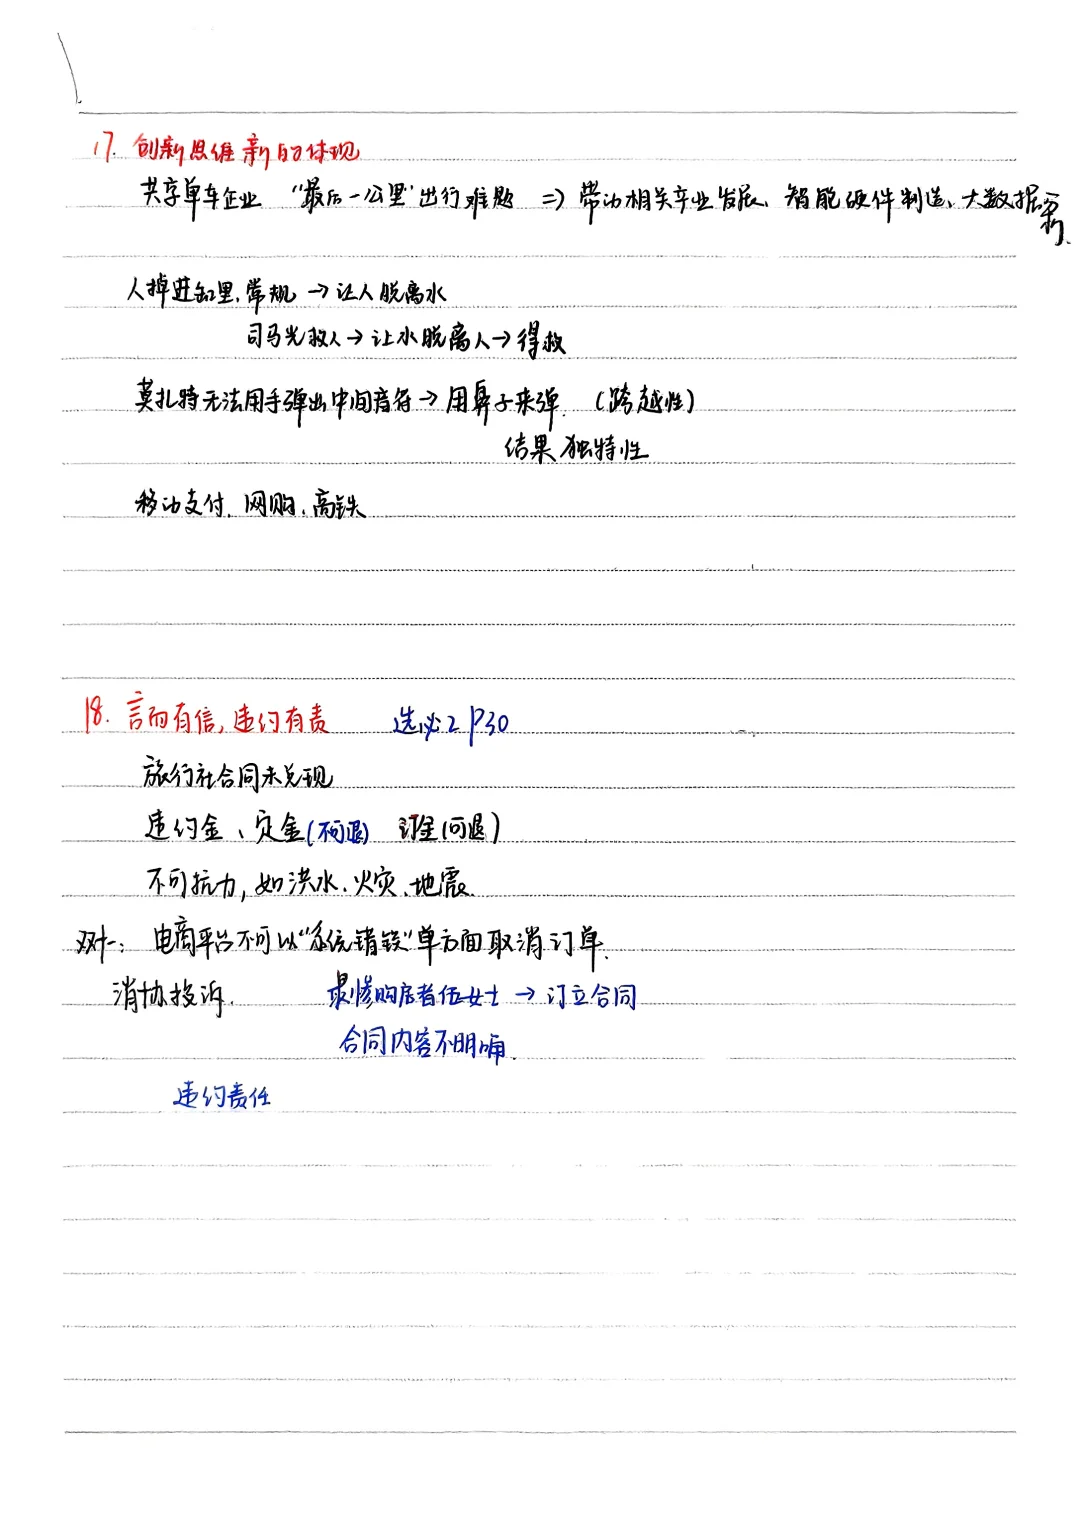 17. 创新思维新的体现
共享单车企业 "最后一公里"出行难题 => 带动相关产业发展、智能硬件制造、大数据分析.
人掉进缸里,常规 → 让人脱离水
司马光救人 → 让水脱离人 → 得救
莫扎特无法用手弹出中间音符 → 用鼻子来弹. (跨越性)
结果独特性
移动支付、网购、高铁
18. 言而有信,违约有责 选必2 P30
旅行社合同未兑现
违约金、定金(不可退) 订金(可退)
不可抗力,如洪水、火灾、地震
双十一: 电商平台不可以"系统错误"单方面取消订单.
消协投诉. 最惨购房者伍女士 → 订立合同
合同内容不明确.
违约责任